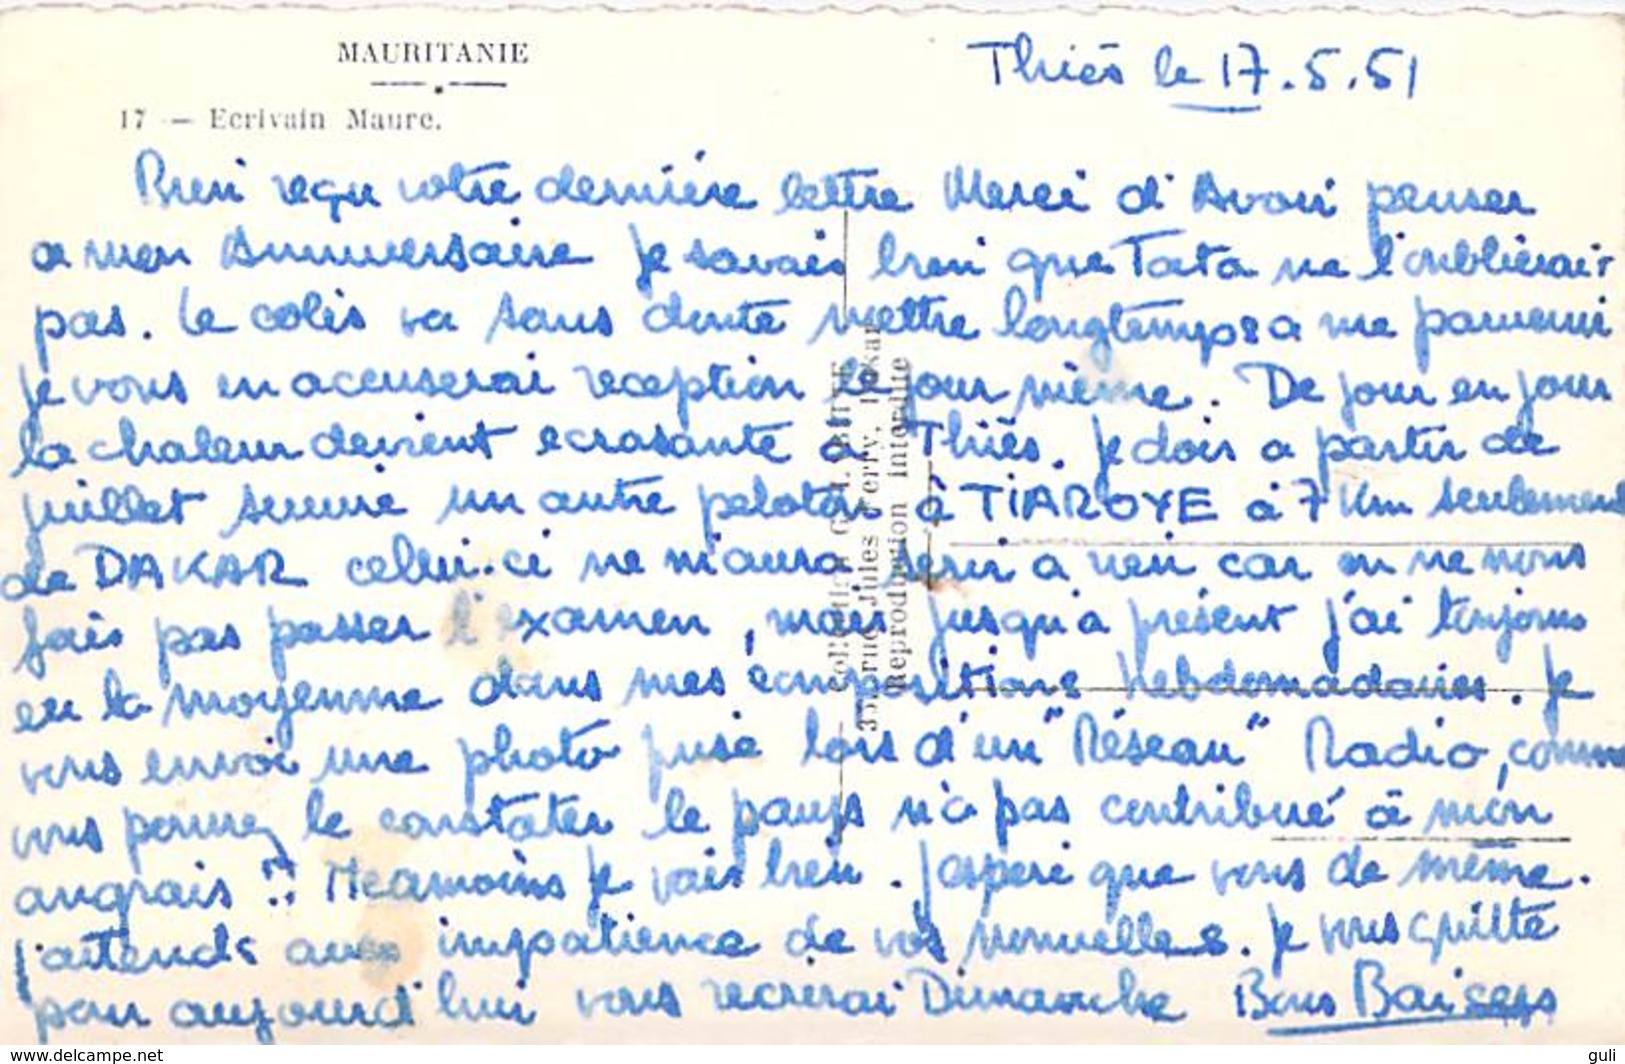 MAURITANIE
17 — Ecrivain Maure.
Thiès le 17.5.51
Bien reçu votre dernière lettre Merci d'Avoir penser
a mon Anniversaire je savais bien que Tata ne l'oublierait
pas. Le colis va sans doute mettre longtemps a me parvenir
je vous en accuserai reception le jour même. De jour en jour
la chaleur devient ecrasante à Thiès. je dois a partir de
juillet suivre un autre peloton à TIAROYE à 7 Km seulement
de DAKAR celui-ci ne m'aura servi a rien car on ne nous
fais pas passer l'examen, mais jusqu'a présent j'ai toujours
eu la moyenne dans mes compositions Hebdomadaires. Je
vous envoi une photo prise lors d'un "Réseau" Radio, comme
vous pourrez le constater le pays n'a pas contribué à mon
angrais !! Neamoins je vais bien. J'espere que vous de même.
j'attends avec impatience de vos nouvelles. Je vous quitte
pour aujourd'hui vous recrirai Dimanche Bons Baisers
Collection G. LABITTE
35, bruc Jules Ferry, Dakar
Reproduction interdite
www.delcampe.net
guli